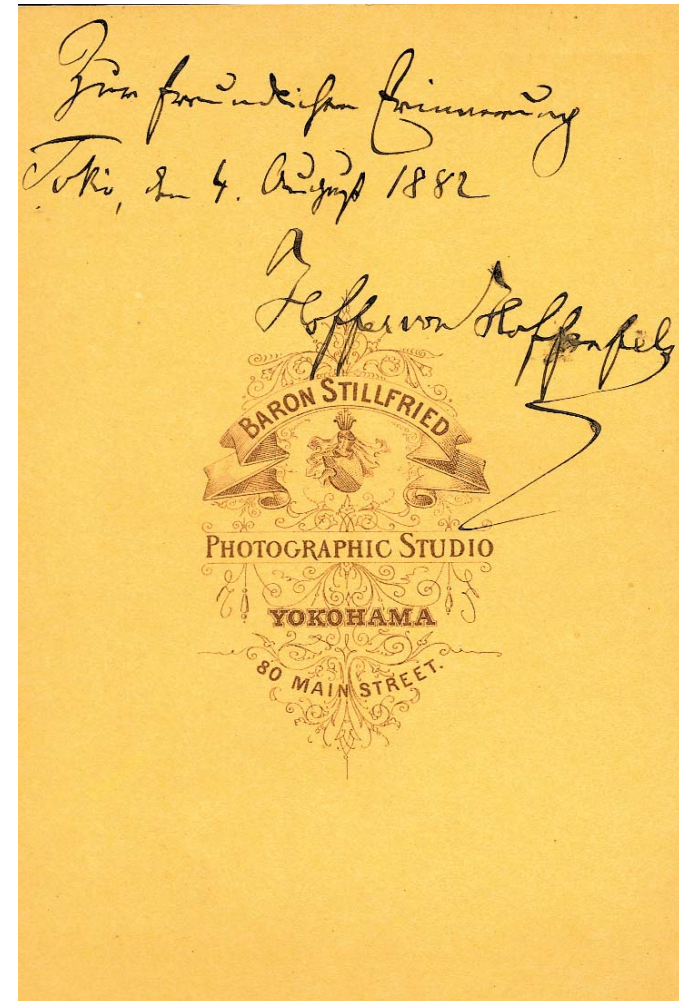 Zur freundlichen Erinnerung
Tokio, den 4. August 1882
Hoffer von Hoffenfels
BARON STILLFRIED
PHOTOGRAPHIC STUDIO
YOKOHAMA
80 MAIN STREET.